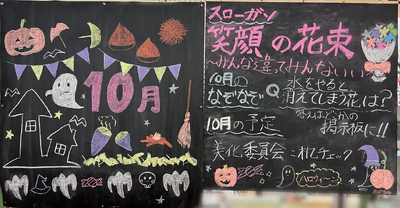 10月
スローガン
笑顔の花束
〜みんな違ってみんないい〜
10月の
なぞなぞ
Q 水をやると
消えてしまう花は？
答えはどこかの
掲示板に!!
10月の予定
美化委員会
チェック
ハロウィーン